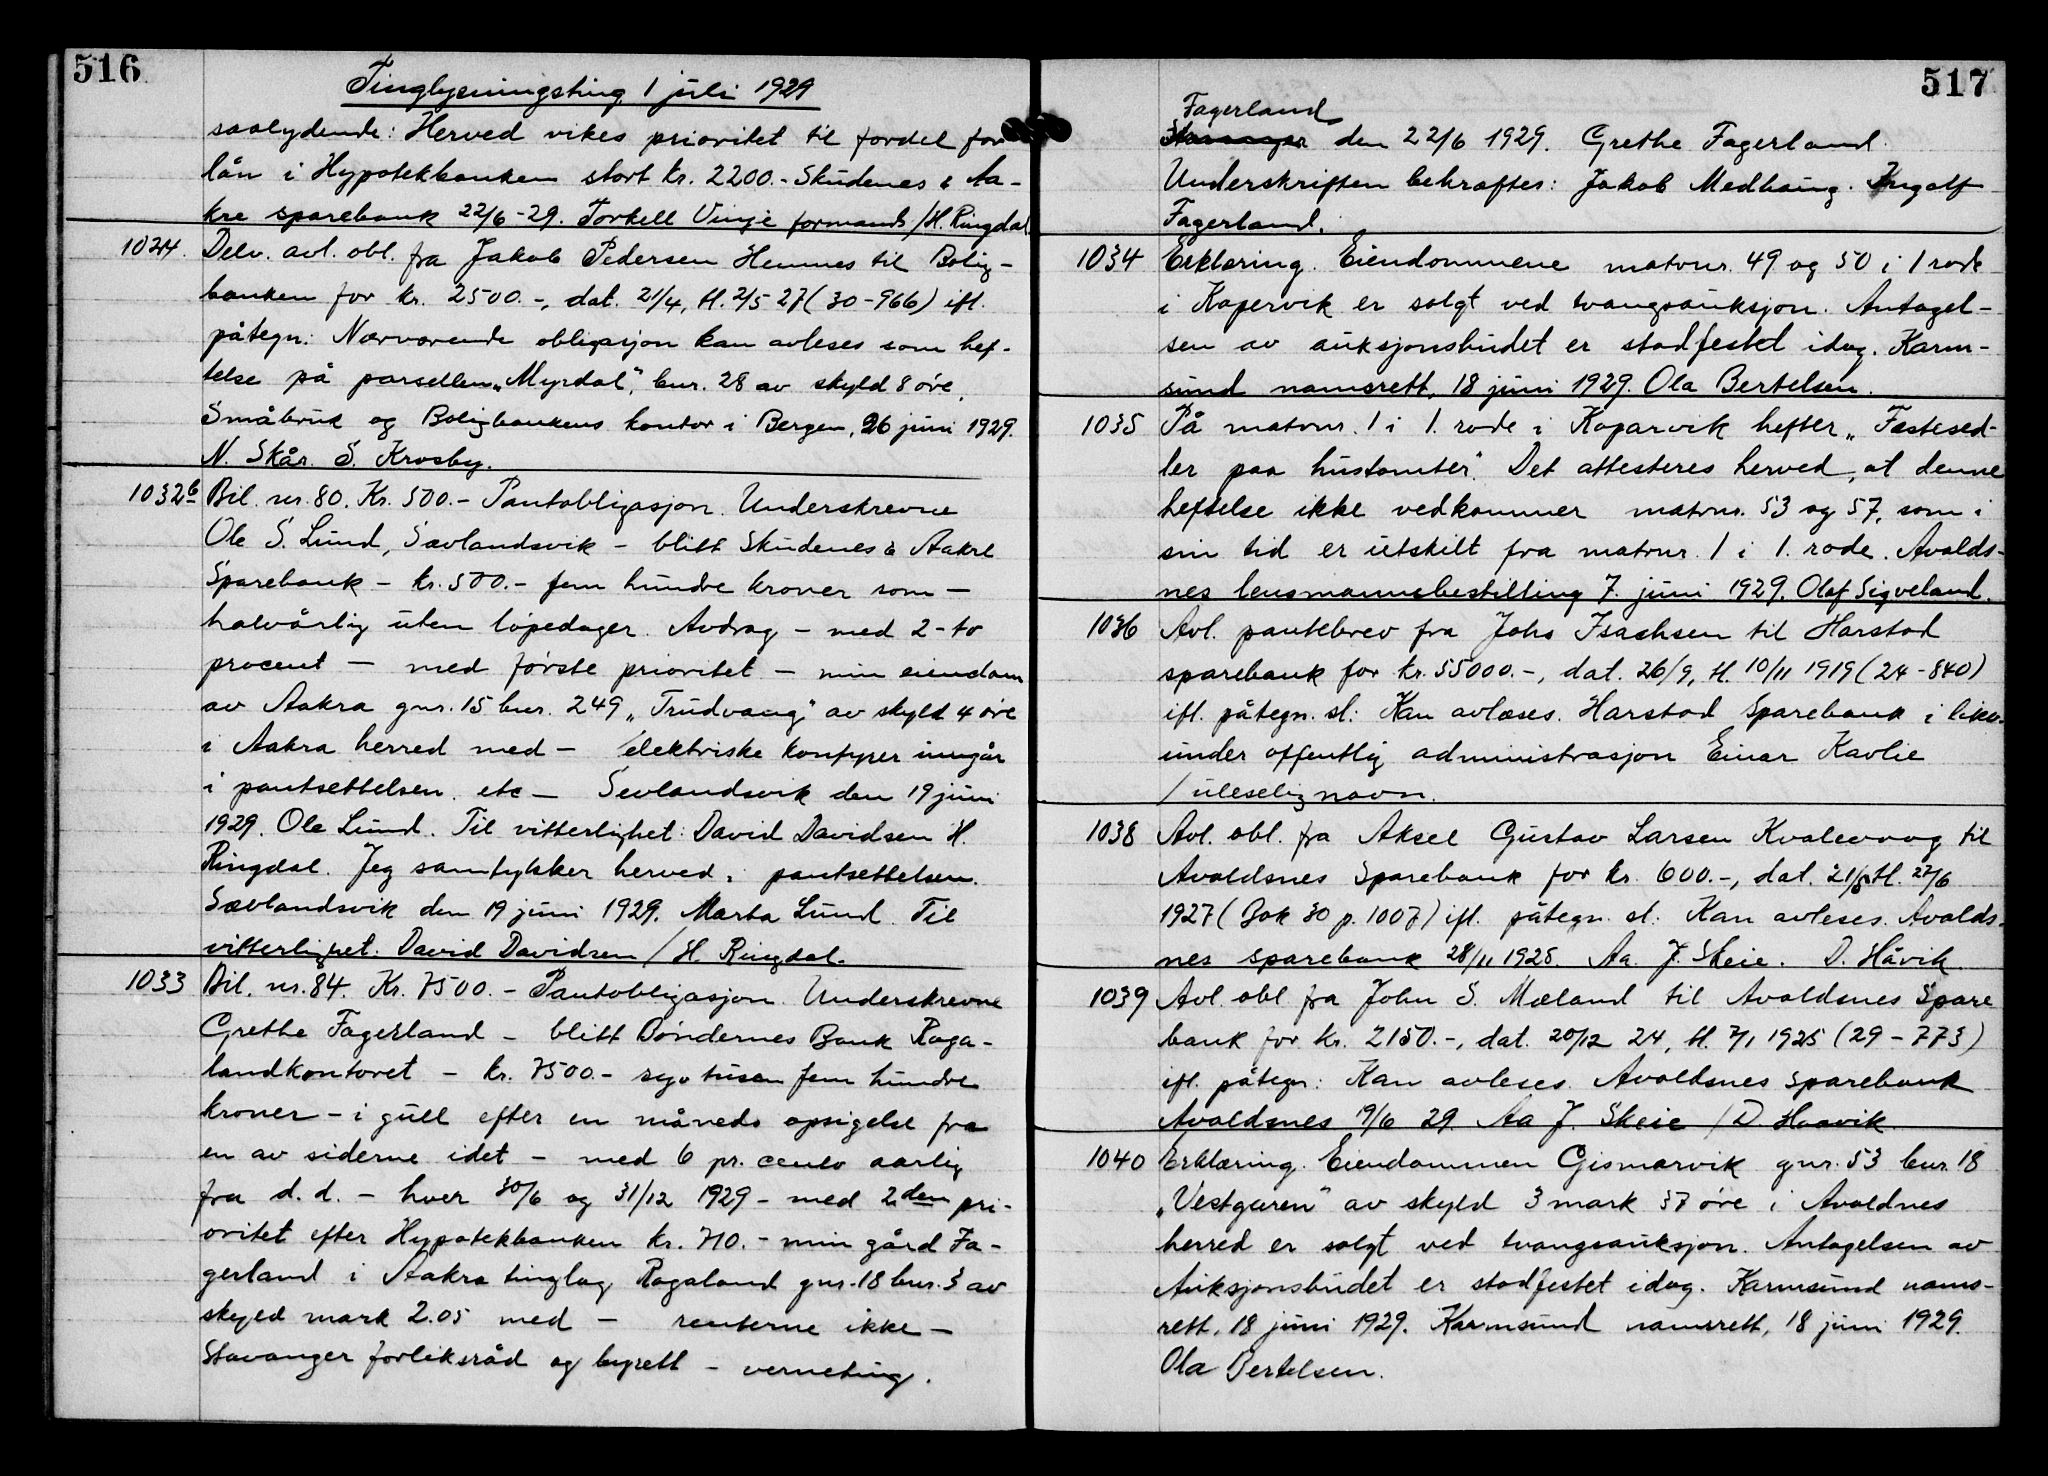 516
Tinglysningsting 1 juli 1929
saalydende: Herved vikes prioritet til fordel for
lån i Hypotekbanken stort kr. 2200.- Skudenes & Aa-
kre sparebank 22/6-29. Torkell Vinje formand /H. Ringdal.
1024. Delv. avl. obl. fra Jakob Pedersen Hemnes til Bolig-
banken for kr. 2500.-, dat. 21/4, tl. 2/5 27 (30-966) ifl.
påtegn: Nærværende obligasjon kan avleses som hef-
telse på parsellen „Myrdal", bnr. 28 av skyld 8 øre,
Småbruk og Boligbankens kontor i Bergen, 26 juni 1929.
N. Skår. S. Krosby.
1032b Bil. nr. 80. Kr. 500.- Pantobligasjon. Underskrevne
Ole S. Lund, Sævlandsvik - blitt Skudenes & Aakre
Sparebank - kr. 500.- fem hundre kroner som -
halvårlig uten löpedager. Avdrag - med 2-to
procent - med første prioritet - min eiendom
av Aakra gnr. 15 bnr. 249 „Trudvang" av skyld 4 øre
i Aakra herred med - elektriske komfyrer inngår
i pantsettelsen. etc - Sevlandsvik den 19 juni
1929. Ole Lund. Til vitterlighet: David Davidsen H.
Ringdal. Jeg samtykker herved i pantsettelsen.
Sævlandsvik den 19 juni 1929. Marta Lund. Til
vitterlighet: David Davidsen / H. Ringdal.
1033 Bil. nr. 84. Kr. 7500.- Pantobligasjon. Underskrevne
Grethe Fagerland - blitt Bøndernes Bank Roga-
landkontoret - kr. 7500.- syv tusen fem hundre
kroner - i gull efter en måneds opsigelse fra
en av siderne idet - med 6 pr. cento aarlig
fra d. d. - hver 30/6 og 31/12 1929 - med 2den pri-
oritet efter Hypotekbanken kr. 710.- min gård Fa-
gerland i Aakra tinglag, Rogaland gnr. 18 bnr. 3 av
skyld mark 2.05 med - renterne ikke -
Stavanger forliksråd og byrett - verneting.
517
Fagerland
den 22/6 1929. Grethe Fagerland.
Underskriften bekræftes: Jakob Medhaug. Ingolf
Fagerland.
1034 Erklæring. Eiendommene matrnr. 49 og 50 i 1 rode
i Kopervik er solgt ved tvangsauksjon. Antagel-
sen av auksjonsbudet er stadfestet idag. Karm-
sund namsrett, 18 juni 1929. Ola Bertelsen.
1035 På matrnr. 1 i 1. rode i Koparvik hefter „Festesed-
ler paa hustomter." Det attesteres herved, at denne
heftelse ikke vedkommer matrnr. 53 og 57, som i
sin tid er utskilt fra matrnr. 1 i 1. rode. Avalds-
nes lensmannsbestilling 7. juni 1929. Olaf Sigveland.
1036 Avl. pantebrev fra Johs Isachsen til Harstad
sparebank for kr. 55000.-, dat. 26/9, tl. 10/11 1919 (24-840)
ifl. påtegn. sl: Kan avlæses. Harstad Sparebank i likv.
under offentlig administrasjon Einar Kavlie
/ uleselig navn.
1038 Avl. obl. fra Aksel Gustav Larsen Kvalevaag til
Avaldsnes Sparebank for kr. 600.-, dat. 21/6 tl. 27/6
1927 (Bok 30 p. 1007) ifl. påtegn. sl: Kan avleses. Avalds-
nes sparebank 28/11 1928. Aa. J. Skeie. D. Håvik.
1039 Avl. obl. fra John S. Mæland til Avaldsnes Spare
bank for kr. 2150.-, dat. 20/12 24, tl. 7/1 1925 (29-773)
ifl. påtegn: Kan avleses. Avaldsnes sparebank
Avaldsnes 19/6 29. Aa J. Skeie / D. Haavik.
1040 Erklæring. Eiendommen Gismarvik gnr. 53 bnr. 18
av skyld 3 mark 37 øre i Avaldnes
herred er solgt ved tvangsauksjon. Antagelsen av
Auksjonsbudet er stadfestet idag. Karmsund nams-
rett, 18 juni 1929. Karmsund namsrett, 18 juni 1929.
Ola Bertelsen.